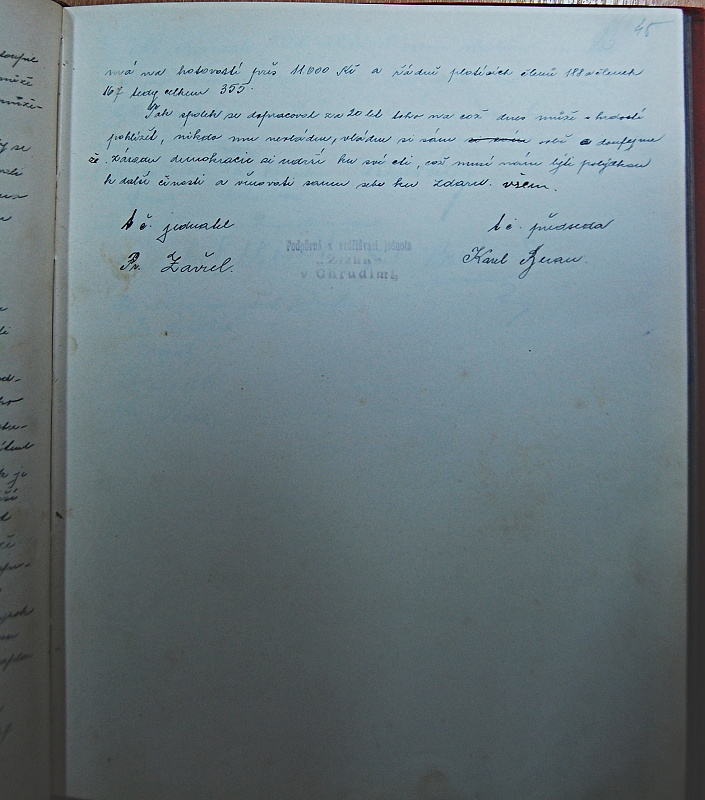 45
má na hotovosti přes 11000 Kč a řádně platících členů 188 a členek
167 tedy celkem 355.
Tak spolek se dopracoval za 20 let toho na což dnes může s hrdostí
pohlížet, nikdo mu nevládnu, vládnu si sám sobě a doufejme
že zásadu demokracie si udrží ku své cti, což musí nám býti pobídkou
k další činosti a věnovati samu sebe ku zdaru všem.
t. č. jednatel
t. č. předseda
Podpůrná a vzdělávací jednota
"Žižka"
v Chrudimi
Fr. Zavřel.
Karel Beran.